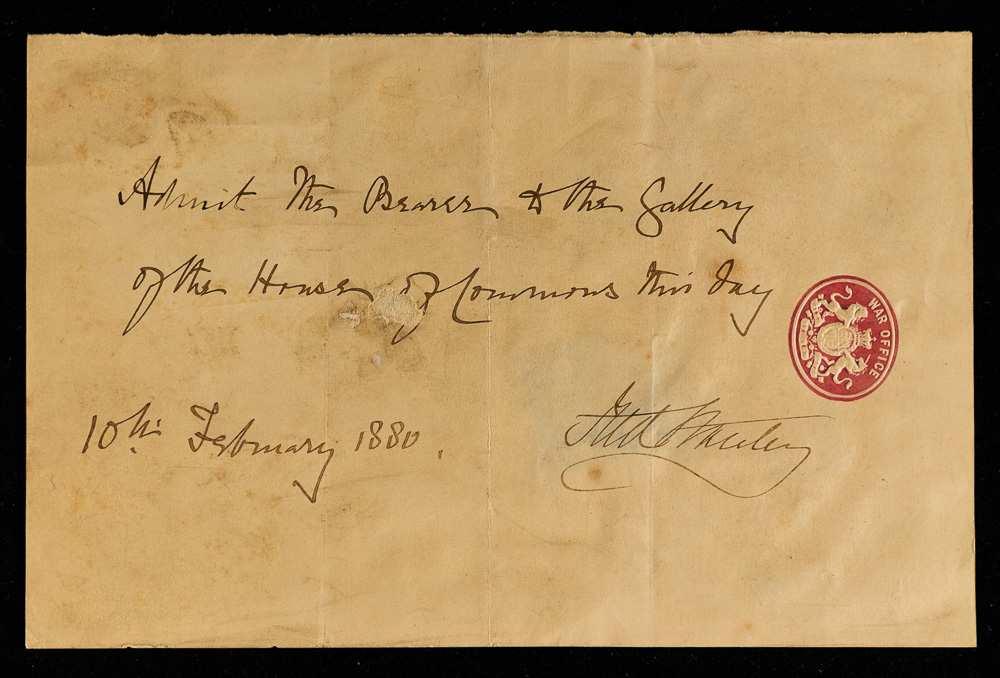 Admit the Bearer to the Gallery
of the House of Commons this day
WAR OFFICE
10th February 1880.
Stanley